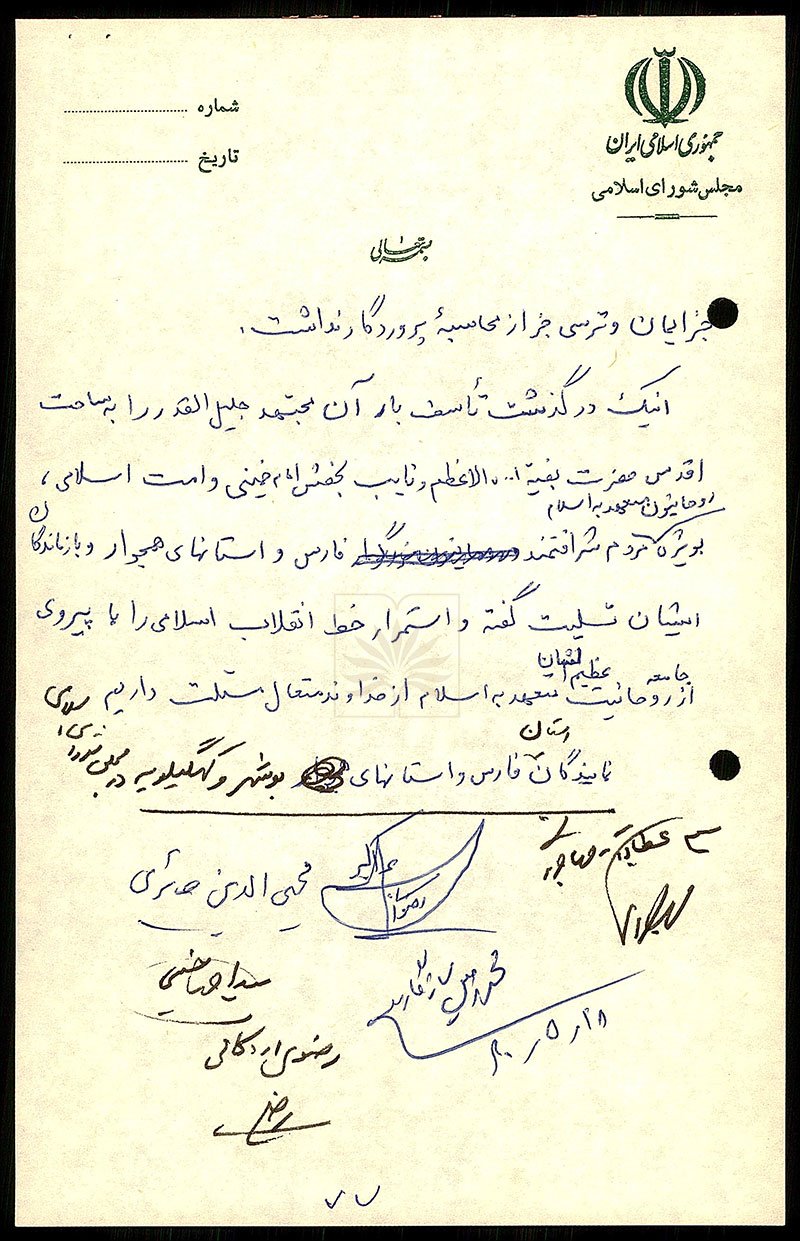 جمهوری اسلامی ایران
مجلس شورای اسلامی
شماره
تاریخ
بسمه تعالی
جز ایمان و ترسی جز از محاسبهٔ پروردگار نداشت.
اینک درگذشت تأسف بار آن مجتهد جلیل القدر را به ساحت
اقدس حضرت بقیة ا... الاعظم و نایب بحقش امام خمینی و امت اسلامی،
روحانیون متعهد به اسلام
بویژه مردم شرافتمند فارس و استانهای همجوار و بازماندگان
ایشان تسلیت گفته و استمرار خط انقلاب اسلامی را با پیروی
جامعه عظیم الشان
از روحانیت متعهد به اسلام از خداوند متعال مسئلت داریم
استان
نمایندگان فارس و استانهای بوشهر و کهگیلویه در مجلس شورای اسلامی
محیی الدین حائری
رضوی اردکانی
۷۷